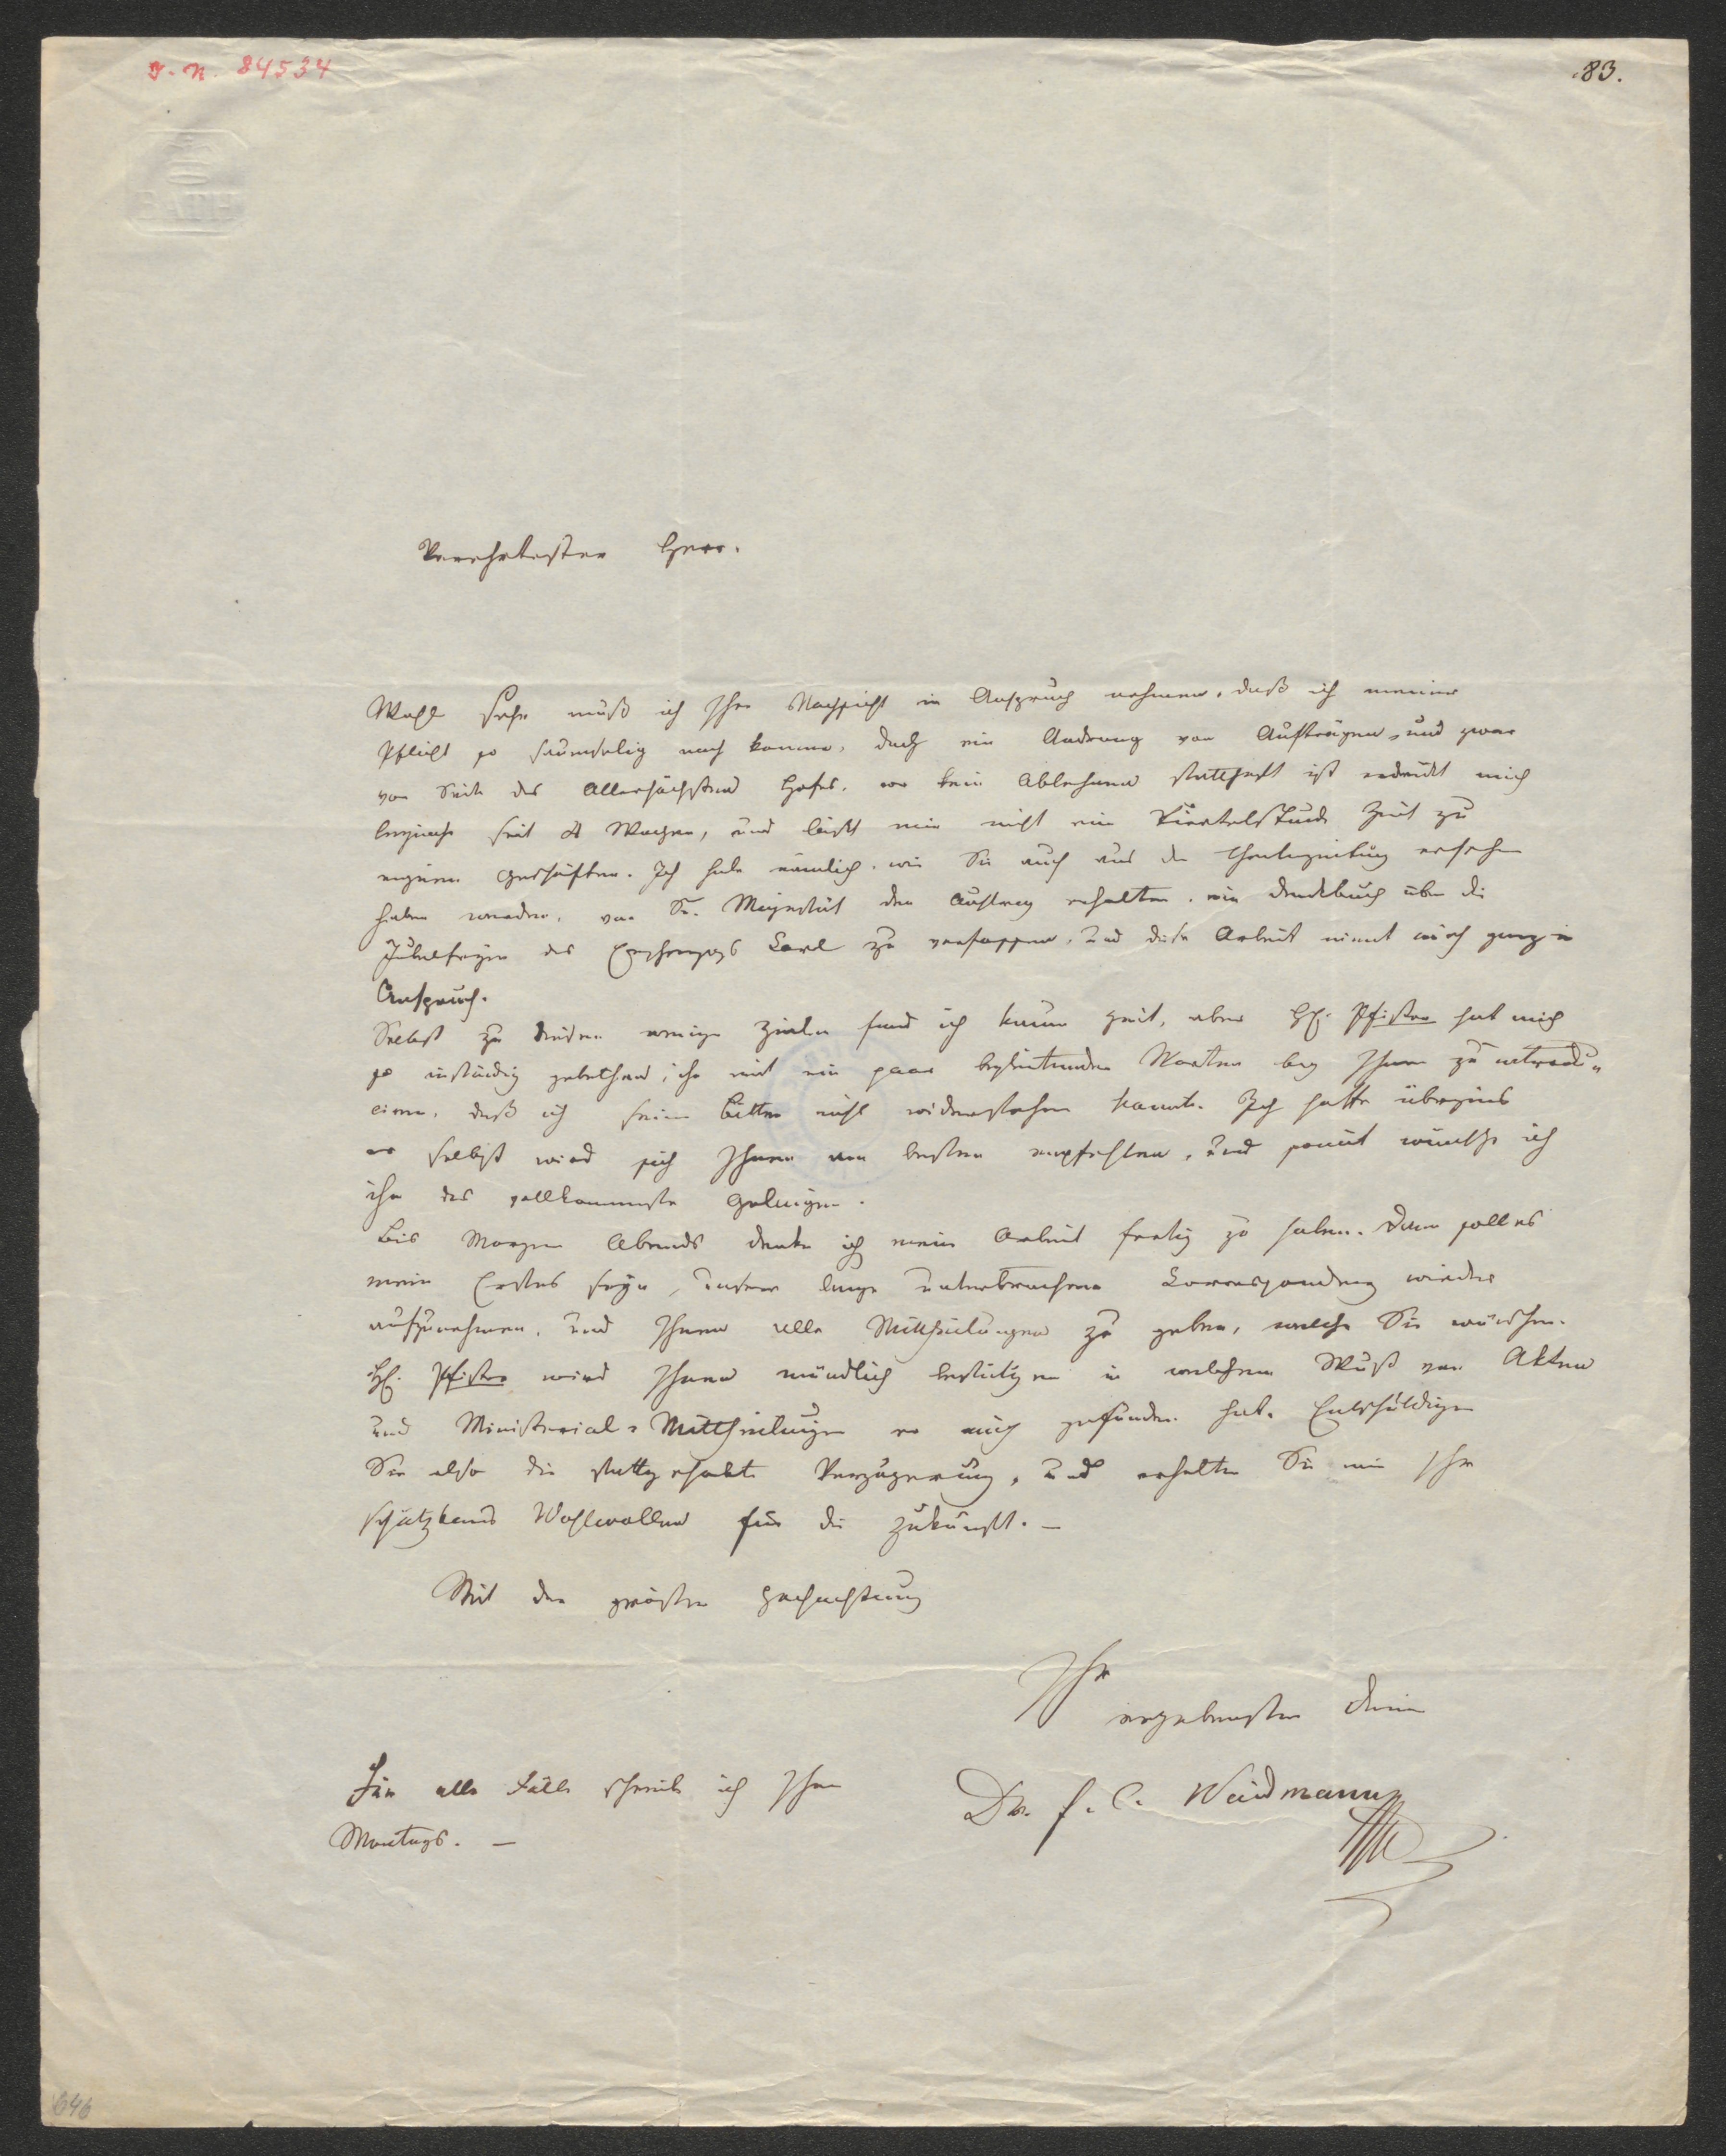 I. N. 84534
83.
BATH
Verehrtester Herr.
Wohl sehr muß ich Ihre Nachsicht in Anspruch nehmen, daß ich meiner
Pflicht so saumselig nach komme, doch ein Andrang von Aufträgen, und zwar
von Seite des Allerhöchsten Hofes, wo kein Ablehnen statthaft ist erdrückt mich
beynahe seit 4 Wochen, und läßt mir nicht eine Viertelstunde Zeit zu
eigenen Geschäften. Ich habe nämlich, wie Sie auch aus der Theaterzeitung ersehen
haben werden, von Sr. Majestät den Auftrag erhalten, ein Denkbuch über die
Jubelfeyer des Erzherzogs Carl zu verfassen, und diese Arbeit nimt mich ganz in
Anspruch.
Selbst zu diesen wenigen Zeilen fand ich kaum Zeit, aber H. Pfister hat mich
so inständig gebethen, ihn mit ein paar begleitenden Worten bey Ihnen zu introdu„
ciren, daß ich seinen Bitten nicht widerstehen konnte. Ich hoffe übrigens
er selbst wird sich Ihnen am besten empfehlen, und somit wünsche ich
ihm das vollkommenste Gelingen.
Bis Morgen Abends denke ich meine Arbeit fertig zu haben. Dann soll es
mein Erstes seyn, unsere lange unterbrochene Correspondenz wieder
aufzunehmen, und Ihnen alle Mittheilungen zu geben, welche Sie wünschen.
H. Pfister wird Ihnen mündlich bestätigen in welchem Wust von Akten
und Ministerial-Mittheilungen er mich gefunden hat. Entschuldigen
Sie also die stattgehabte Verzögerung, und erhalten Sie mir Ihr
schätzbares Wohlwollen für die Zukunft. —
Mit der größten Hochachtung
Ihr
ergebenster Diener
Dr. F. C. Weidmann
Für alle Fälle schreibe ich Ihnen
Montags. —
646